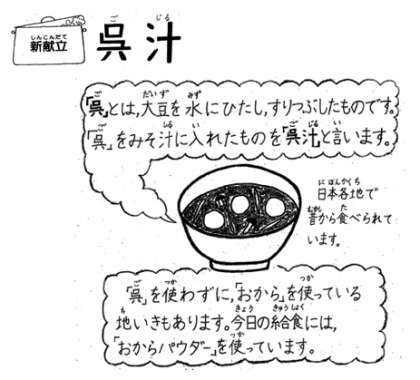 新献立
呉汁
「呉」とは,大豆を水にひたし,すりつぶしたものです。
「呉」をみそ汁に入れたものを「呉汁」と言います。
日本各地で
昔から食べられて
います。
「呉」を使わずに,「おから」を使っている
地いきもあります。今日の給食には,
「おからパウダー」を使っています。